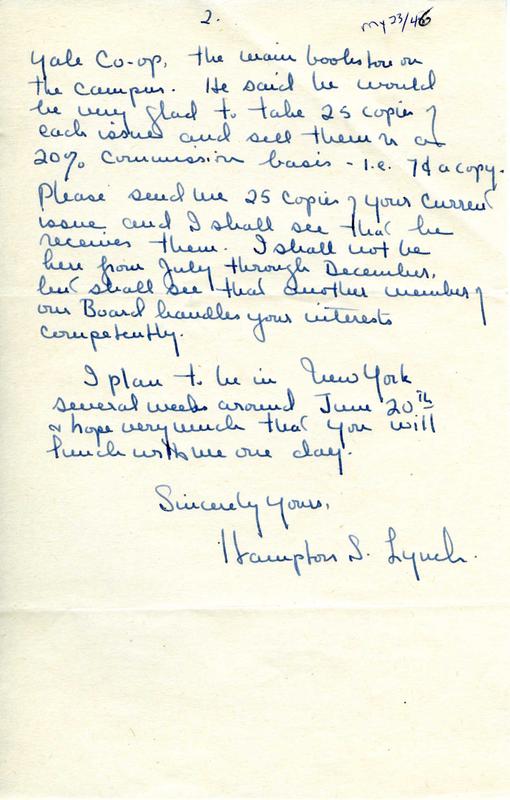 2.
my 23/46
Yale Co-op, the main bookstore on
the campus. He said he would
be very glad to take 25 copies of
each issue and sell them on a
20% commission basis - i.e. 7¢ a copy.
Please send me 25 copies of your current
issue and I shall see that he
receives them. I shall not be
here from July through December,
but shall see that another member of
our Board handles your interests
competently.
I plan to be in New York
several weeks around June 20th
& hope very much that you will
lunch with me one day.
Sincerely yours,
Hampton S. Lynch.